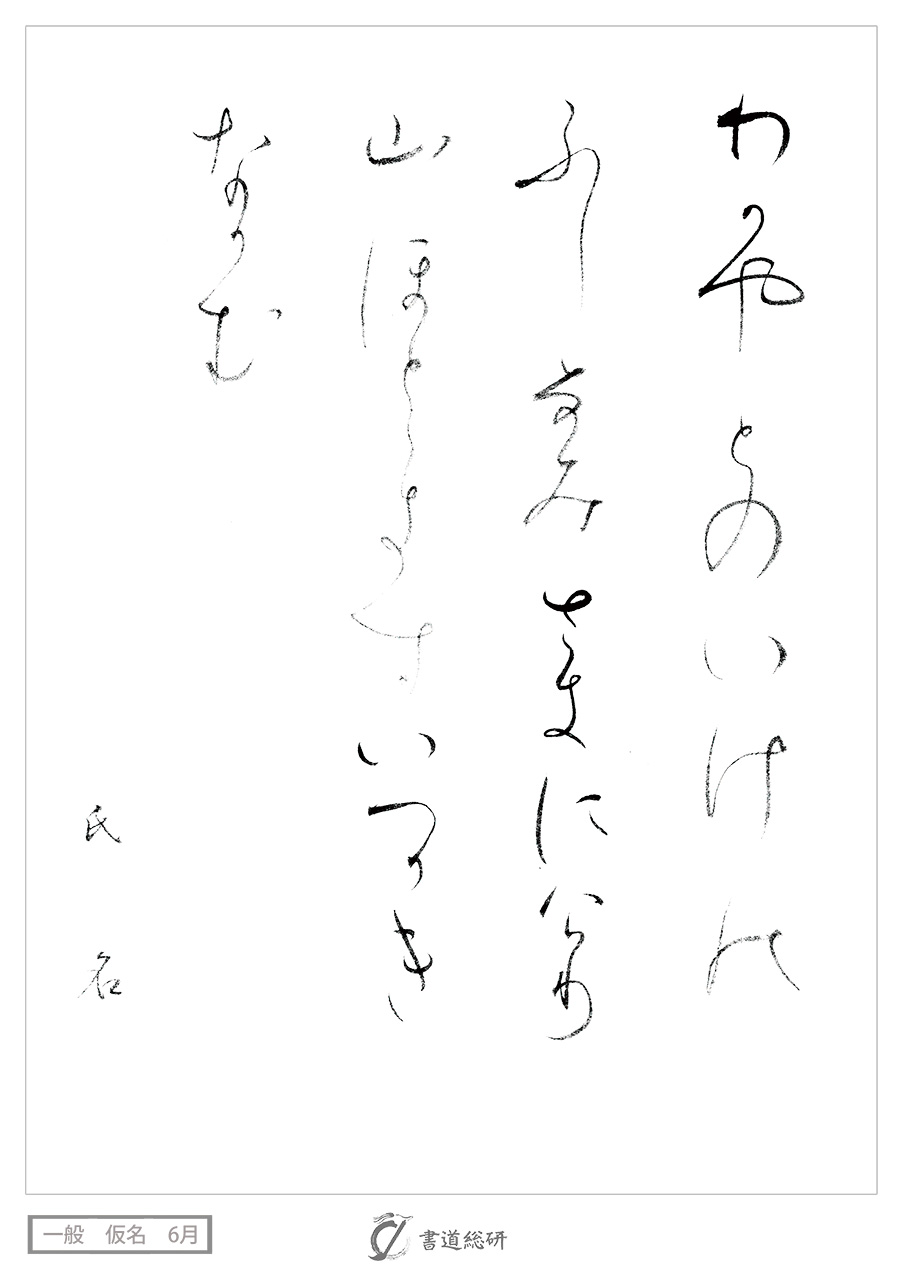 わかやとのいけの
ふしなみさきにけり
山ほとゝきすいつかき
なかむ
氏名
一般 仮名 6月
書道総研